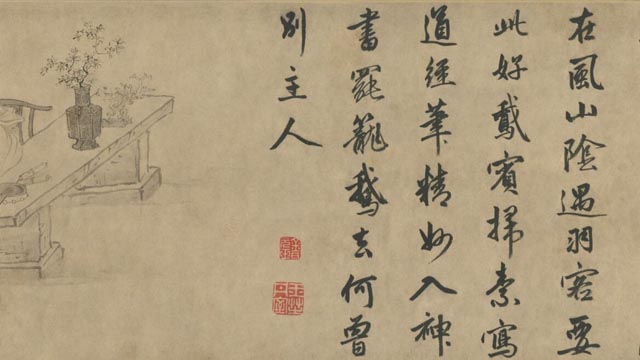 在風山陰遇羽客要
此好鵞賓掃素寫
道經筆精妙入神
書罷籠鵝去何曾
別主人